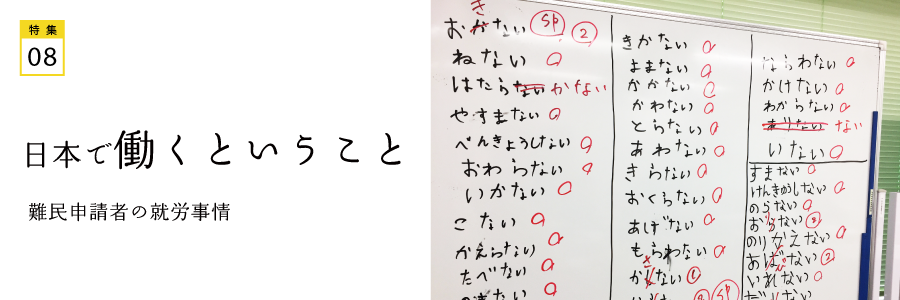 特集
08
日本で働くということ
難民申請者の就労事情
き
おかない SP ②
ねない
はたらないかない
やすまない
べんきょうしない
おわらない
いかない
こない
かえらない
たべない
きかない
よまない
かかない
かわない
とらない
あわない
きらない
おくらない
あげない
もらわない
ならわない
かけない
わからない
ありない ない
いない
すまない
けんきゅうしない
のらない
のりかえない
いれない